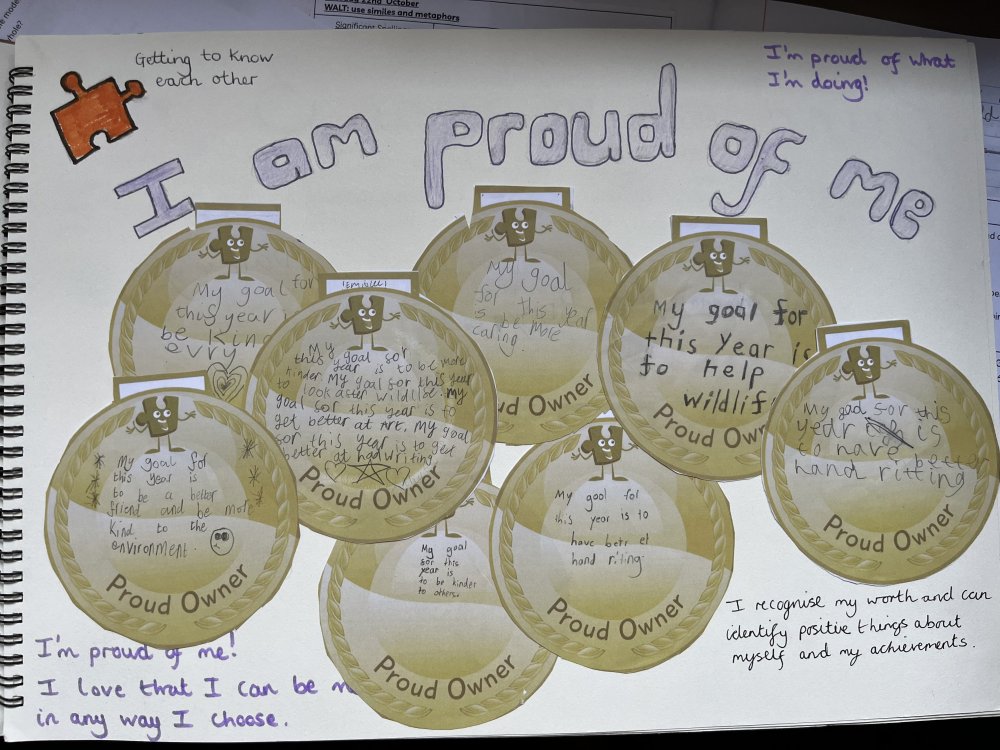 22nd October
WALT: use similes and metaphors
Getting to know
each other
I'm proud of what
I'm doing!
I am proud of me
My goal for
thus year i
be kin
evry
My
this goal sor
year is to be more
kinder. My goal sor this year
to look aster wildlise. my
goal sor this year is to
get better at Art. My goal
sor this year is to get
better at hadwriting
Proud Owner
My goal
for this year
is be more
caring.
ud Owner
My goal for
this Year is
to help
wildlif
Proud Own
My goal for this
year is
to have better
hand ritting
Proud Owner
My goal for
this year is
to be a better
friend and be more
Kind to the
environment.
Proud Owner
My goal
sor this
year is
to be kinder
to others.
Proud Owner
My goal for
this year is to
have betr et
hand riting.
Proud Owner
I recognise my worth and can
identify positive things about
myself and my achievements.
I'm proud of me!
I love that I can be m
in any way I choose.